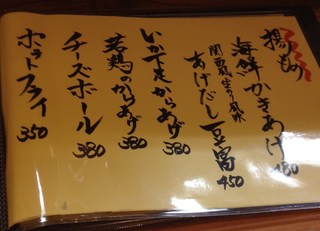 揚もの
海鮮かきあげ 480
関西風生のり風味
あげだし豆腐 450
いか下足からあげ 380
若鶏のからあげ 380
チーズボール 380
ポテトフライ 350